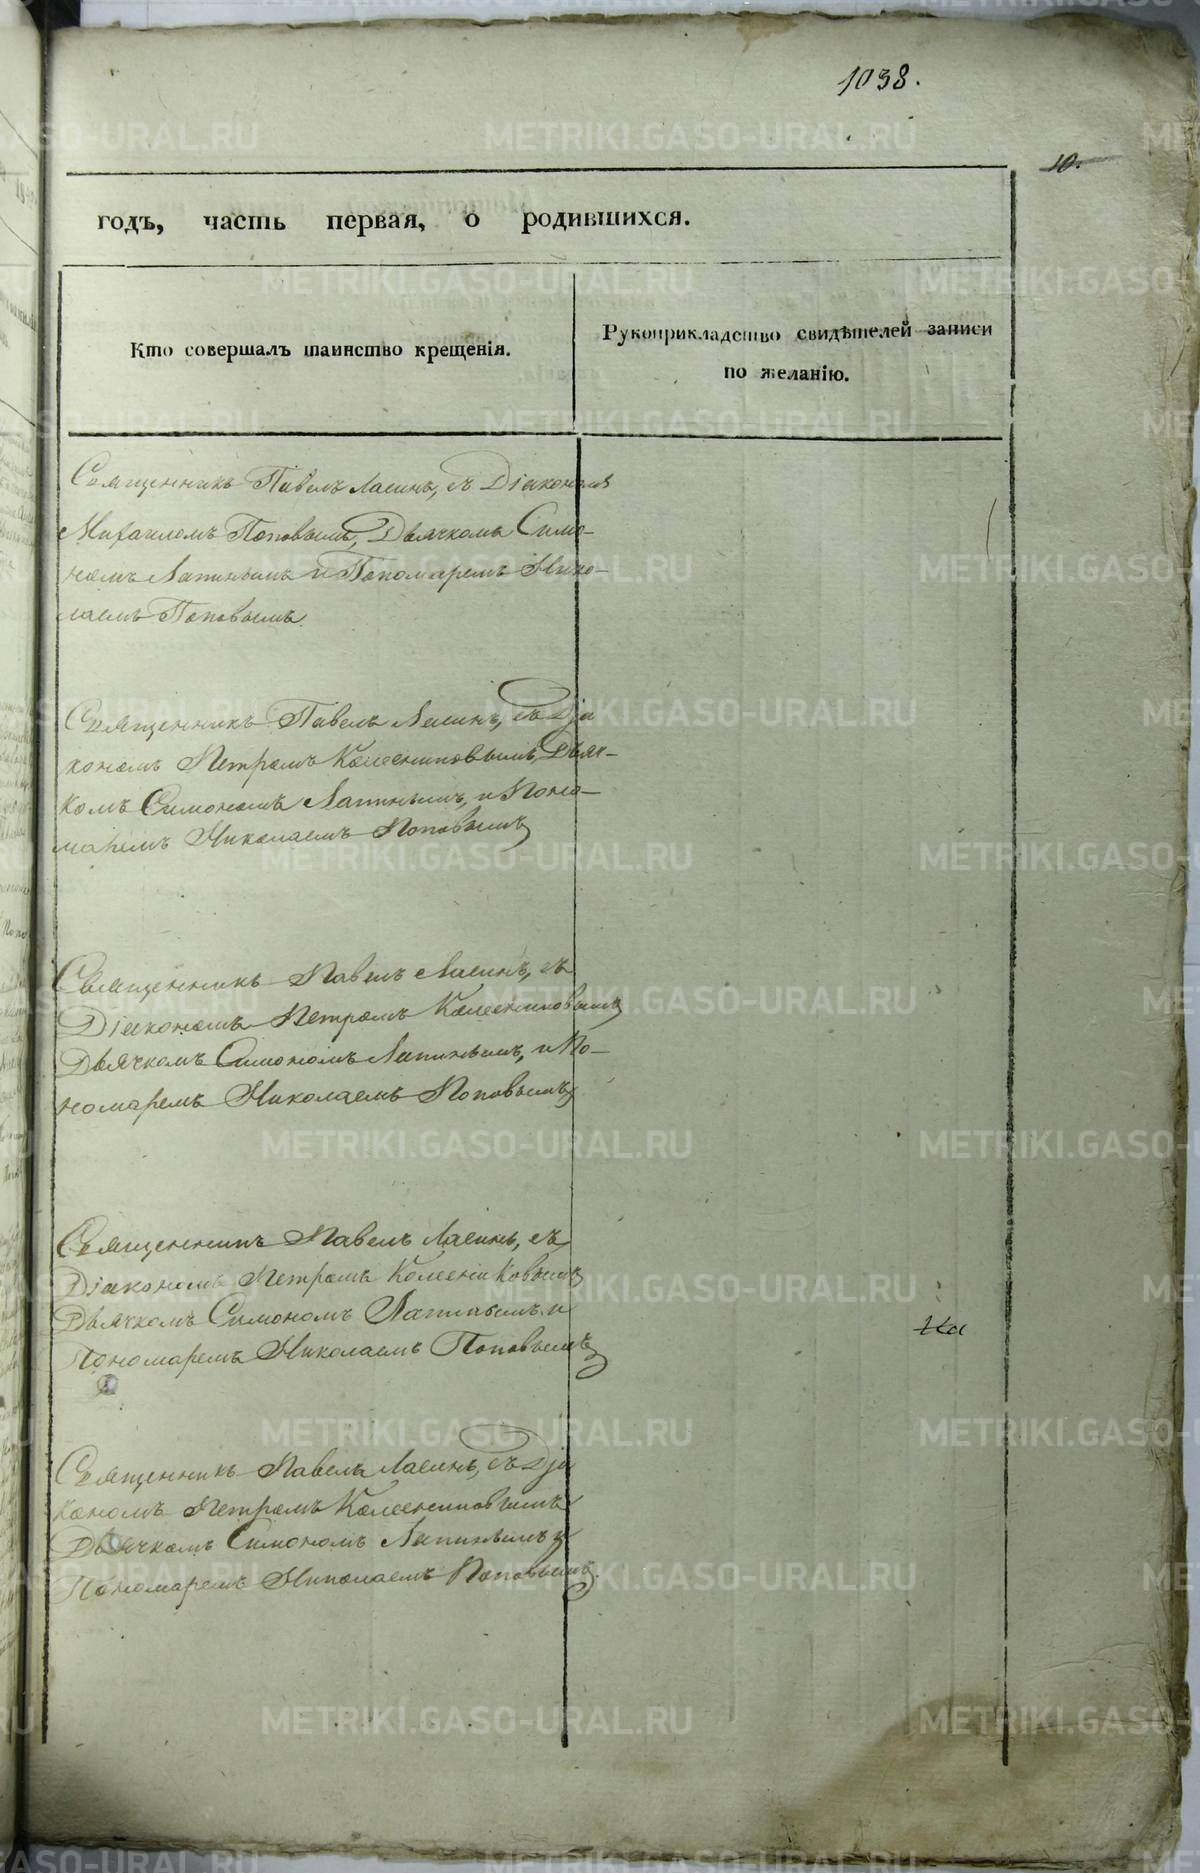 1038.
10.
годъ, часть первая, о родившихся.
Кто совершалъ таинство крещенія.
Рукоприкладство свидѣтелей записи
по желанію.
Священникъ Павелъ Ласинъ, съ Діакономъ
Михаиломъ Поповымъ, Дьячкомъ Симо-
номъ Лапинымъ и Пономаремъ Нико-
лаемъ Поповымъ.
Священникъ Павелъ Ласинъ, съ Діа
кономъ Петромъ Колесниковымъ, Дьяч-
комъ Симономъ Лапинымъ, и Поно-
маремъ Николаемъ Поповымъ
Священникъ Павелъ Ласинъ, съ
Діакономъ Петромъ Колесниковымъ
Дьячкомъ Симономъ Лапинымъ, и По-
номаремъ Николаемъ Поповымъ
Священникъ Павелъ Ласинъ, съ
Діакономъ Петромъ Колесниковымъ
Дьячкомъ Симономъ Лапинымъ и
Пономаремъ Николаемъ Поповымъ
Священникъ Павелъ Ласинъ, съ Діа
кономъ Петромъ Колесниковымъ
Дьячкомъ Симономъ Лапинымъ и
Пономаремъ Николаемъ Поповымъ.
METRIKI.GASO-URAL.RU